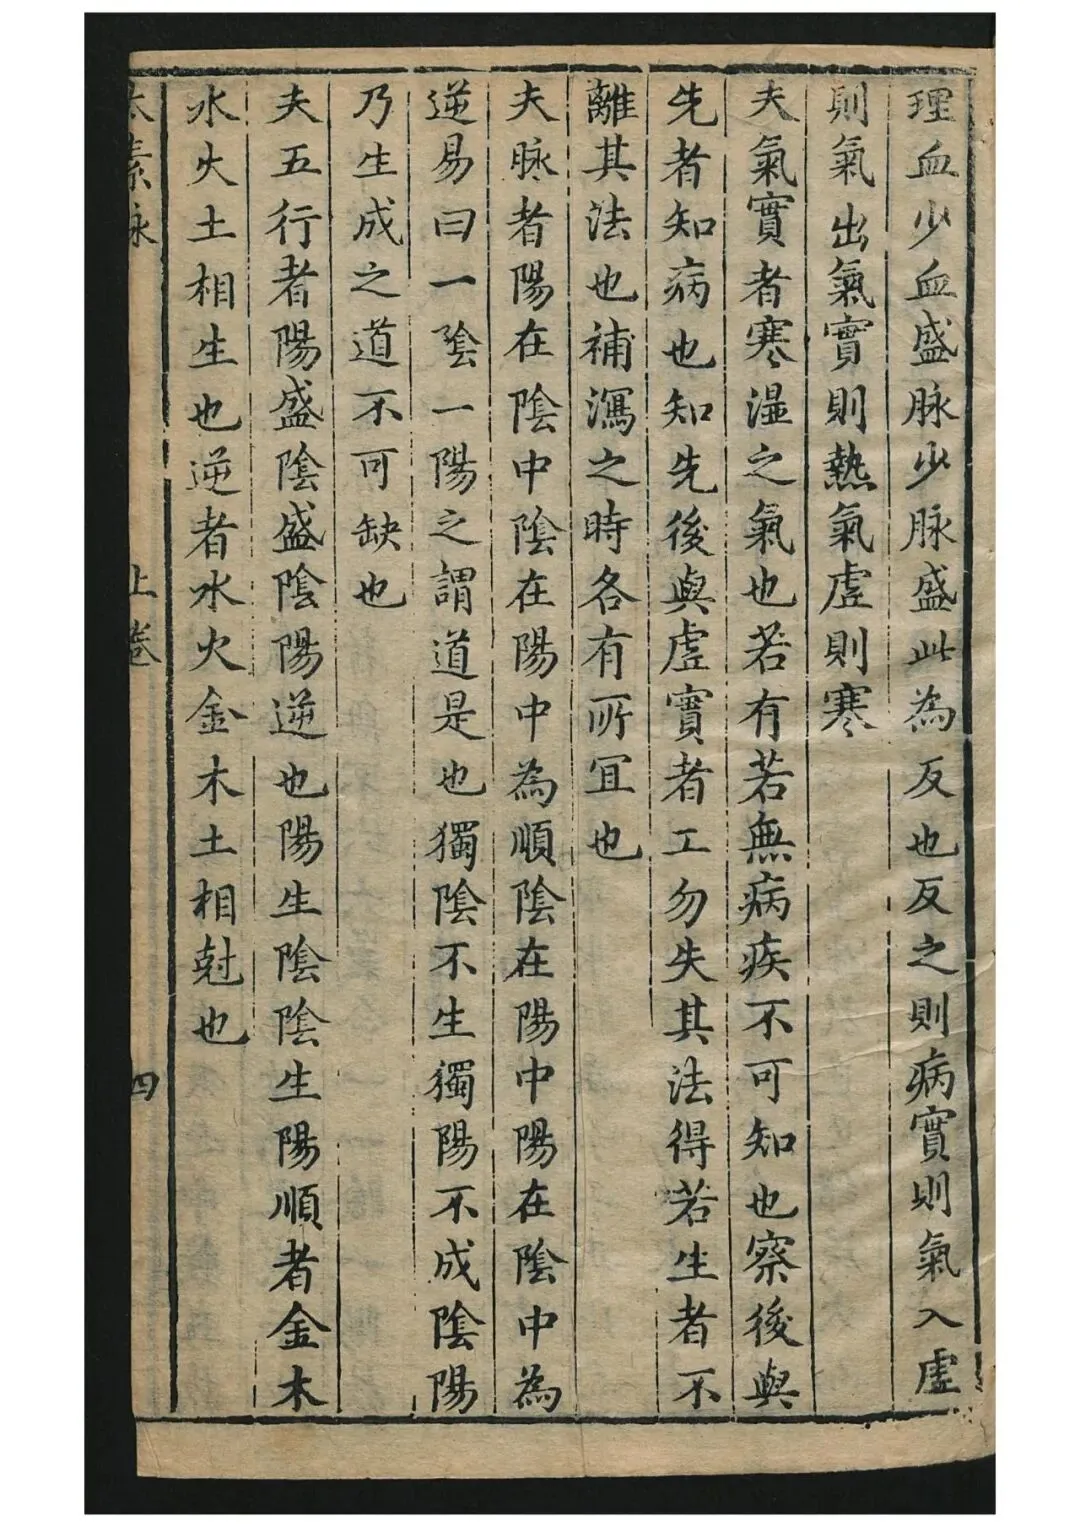 理血少血盛脉少脉盛此為反也反之則病實則氣入虛
則氣出氣實則熱氣虛則寒
夫氣實者寒濕之氣也若有若無病疾不可知也察後與
先者知病也知先後與虛實者工勿失其法得若生者不
離其法也補瀉之時各有所宜也
夫脉者陽在陰中陰在陽中為順陰在陽中陽在陰中為
逆易曰一陰一陽之謂道是也獨陰不生獨陽不成陰陽
乃生成之道不可缺也
夫五行者陽盛陰盛陰陽逆也陽生陰陰生陽順者金木
水火土相生也逆者水火金木土相尅也
太素脉 上卷 四